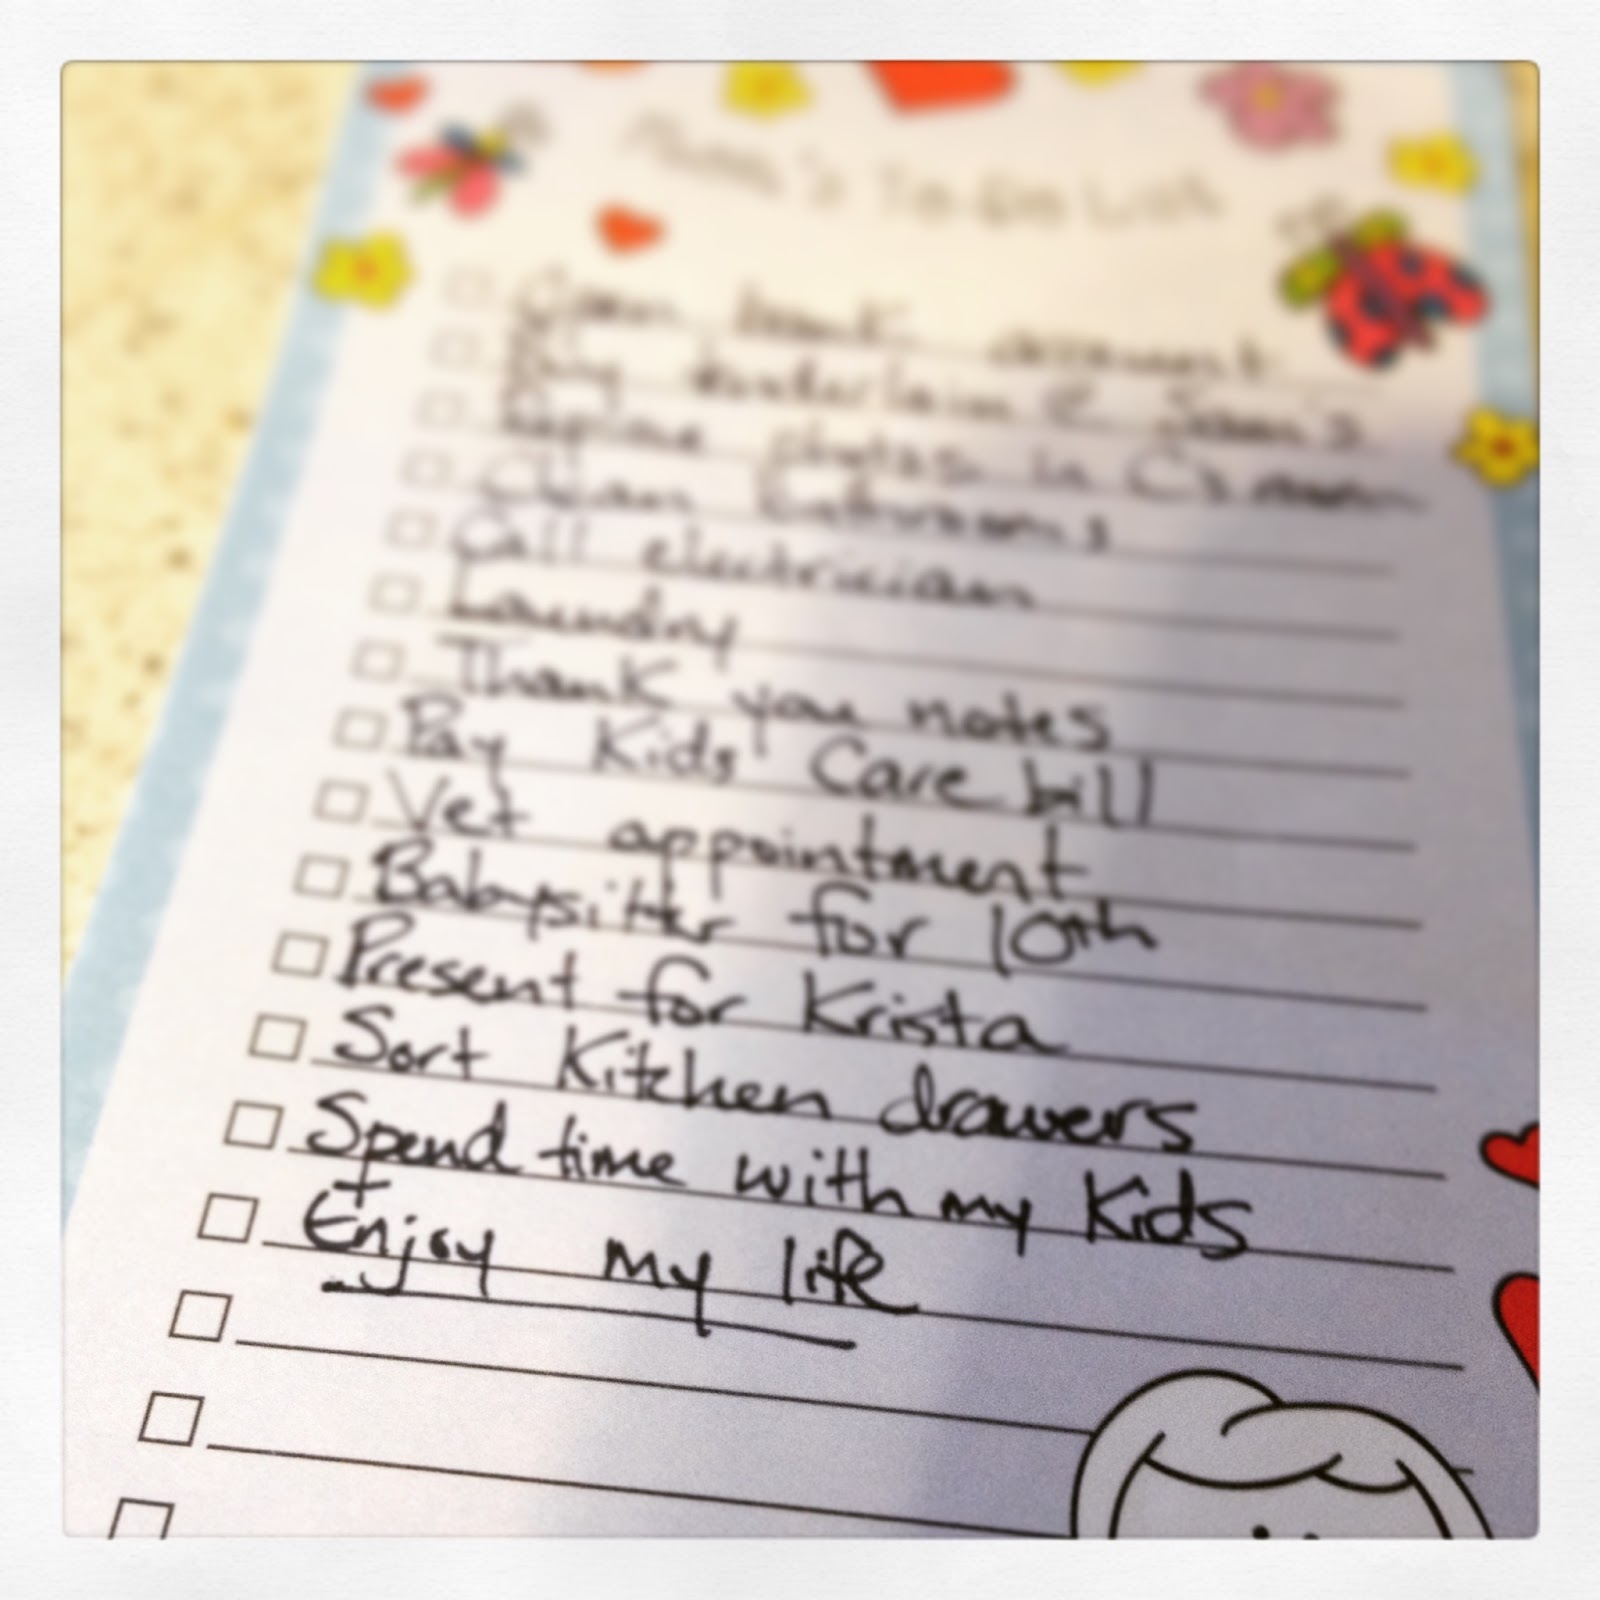 Mom's To-Do List
Open bank account
Buy tenderloin @ Sam's
Replace photos in
Clean Bathrooms
Call electrician
Laundry
Thank you notes
Pay Kids' Care bill
Vet appointment
Babysitter for 10th
Present for Krista
Sort Kitchen drawers
Spend time with my Kids
Enjoy my life